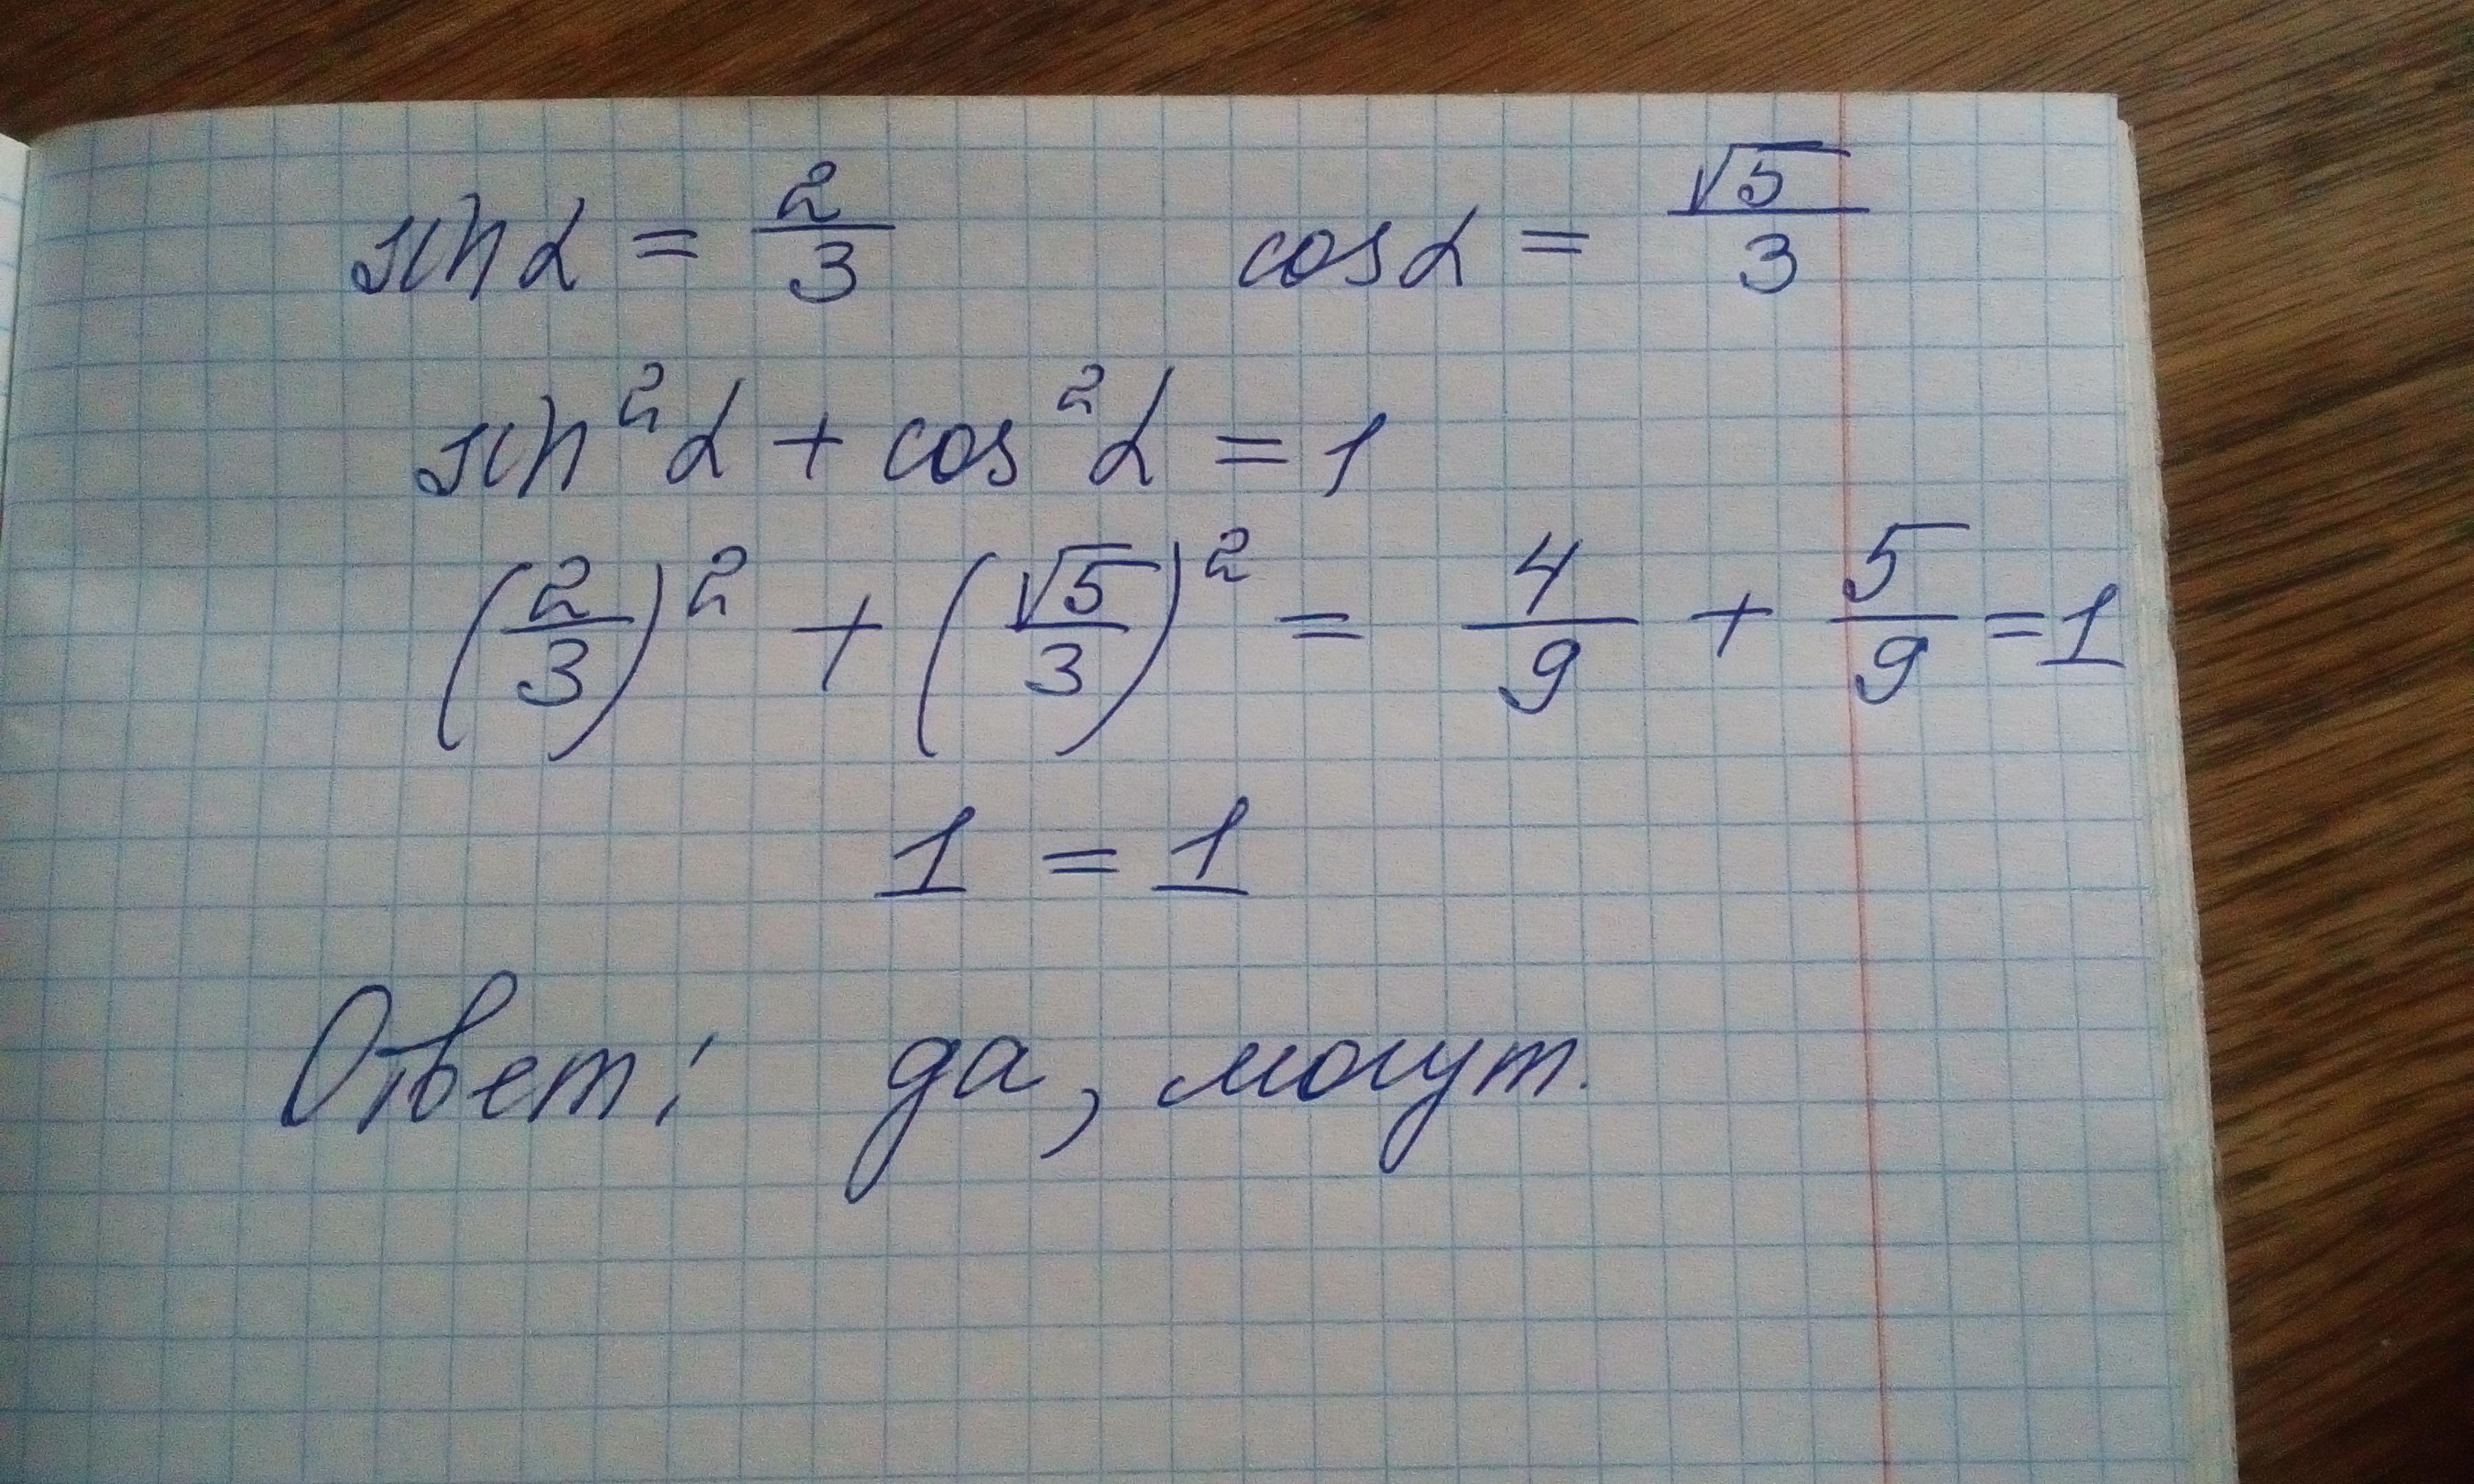 sin α = 2/3 cos α = √5/3
sin²α + cos²α = 1
(2/3)² + (√5/3)² = 4/9 + 5/9 = 1
1 = 1
Ответ: да, могут.